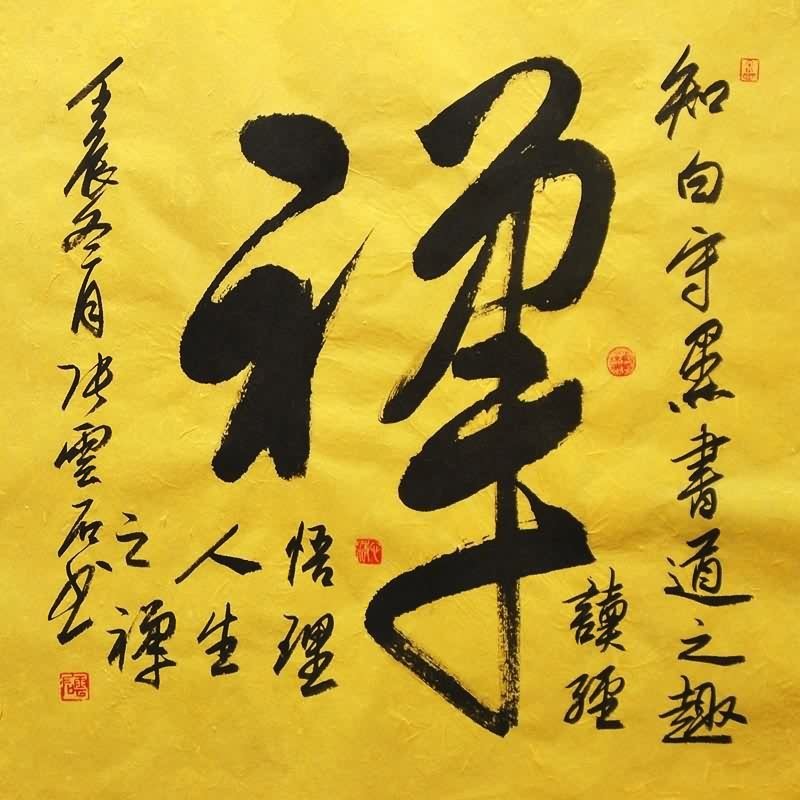 禪
知白守黑書道之趣
讀經
悟理
人生
之禪
壬辰冬二月張雲石书